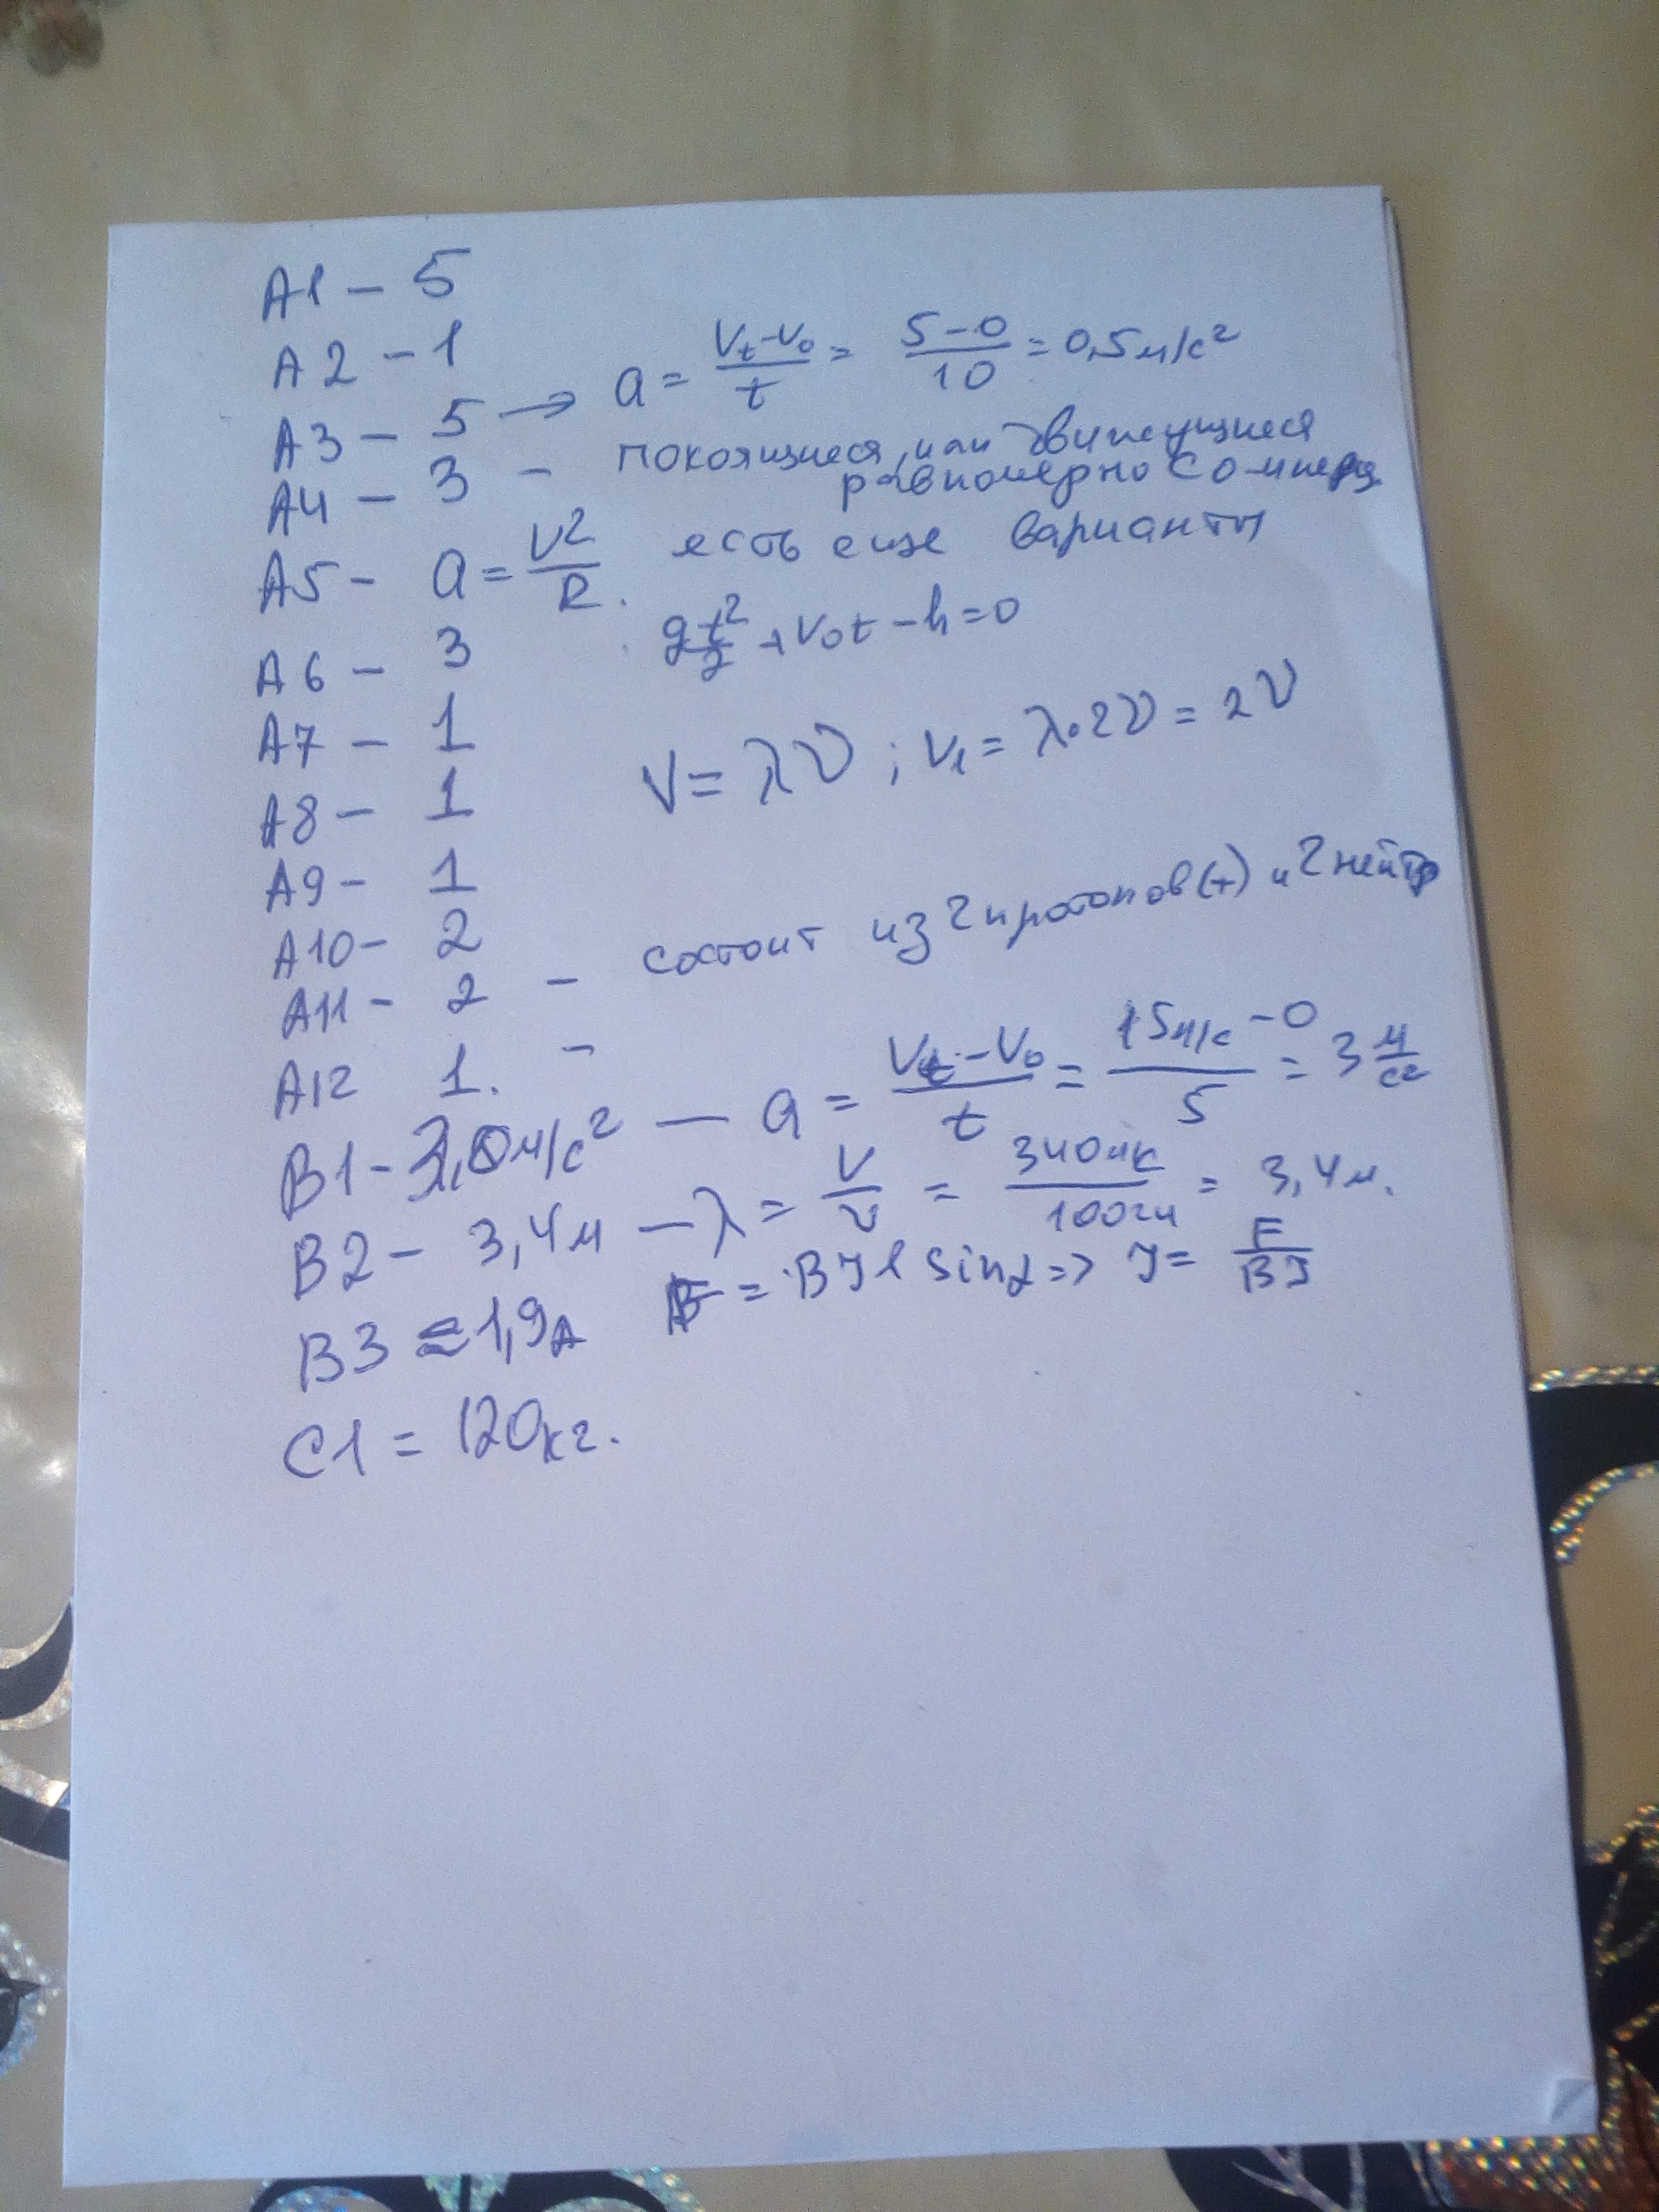 А1 – 5
А2 – 1
А3 – 5 → a = (Vt–V0)/t = (5–0)/10 = 0,5 м/с²
А4 – 3 – покоящиеся или движущиеся
равномерно
А5 – a = V²/R. есть еще варианты
А6 – 3 gt²/2 + V0t – h = 0
А7 – 1
А8 – 1 V = λν ; V1 = λ·2ν = 2ν
А9 – 1
А10 – 2
А11 – 2 – состоит из 2 протонов(+) и 2 нейтр
А12 1. –
В1 – 3,0м/с² — a = (Vt–V0)/t = (15м/с–0)/5 = 3 м/с²
В2 – 3,4м — λ = V/ν = 340мс/100гц = 3,4м.
В3 ≈ 1,9А F = BIl sinα => I = F/BI
С1 = 120кг.